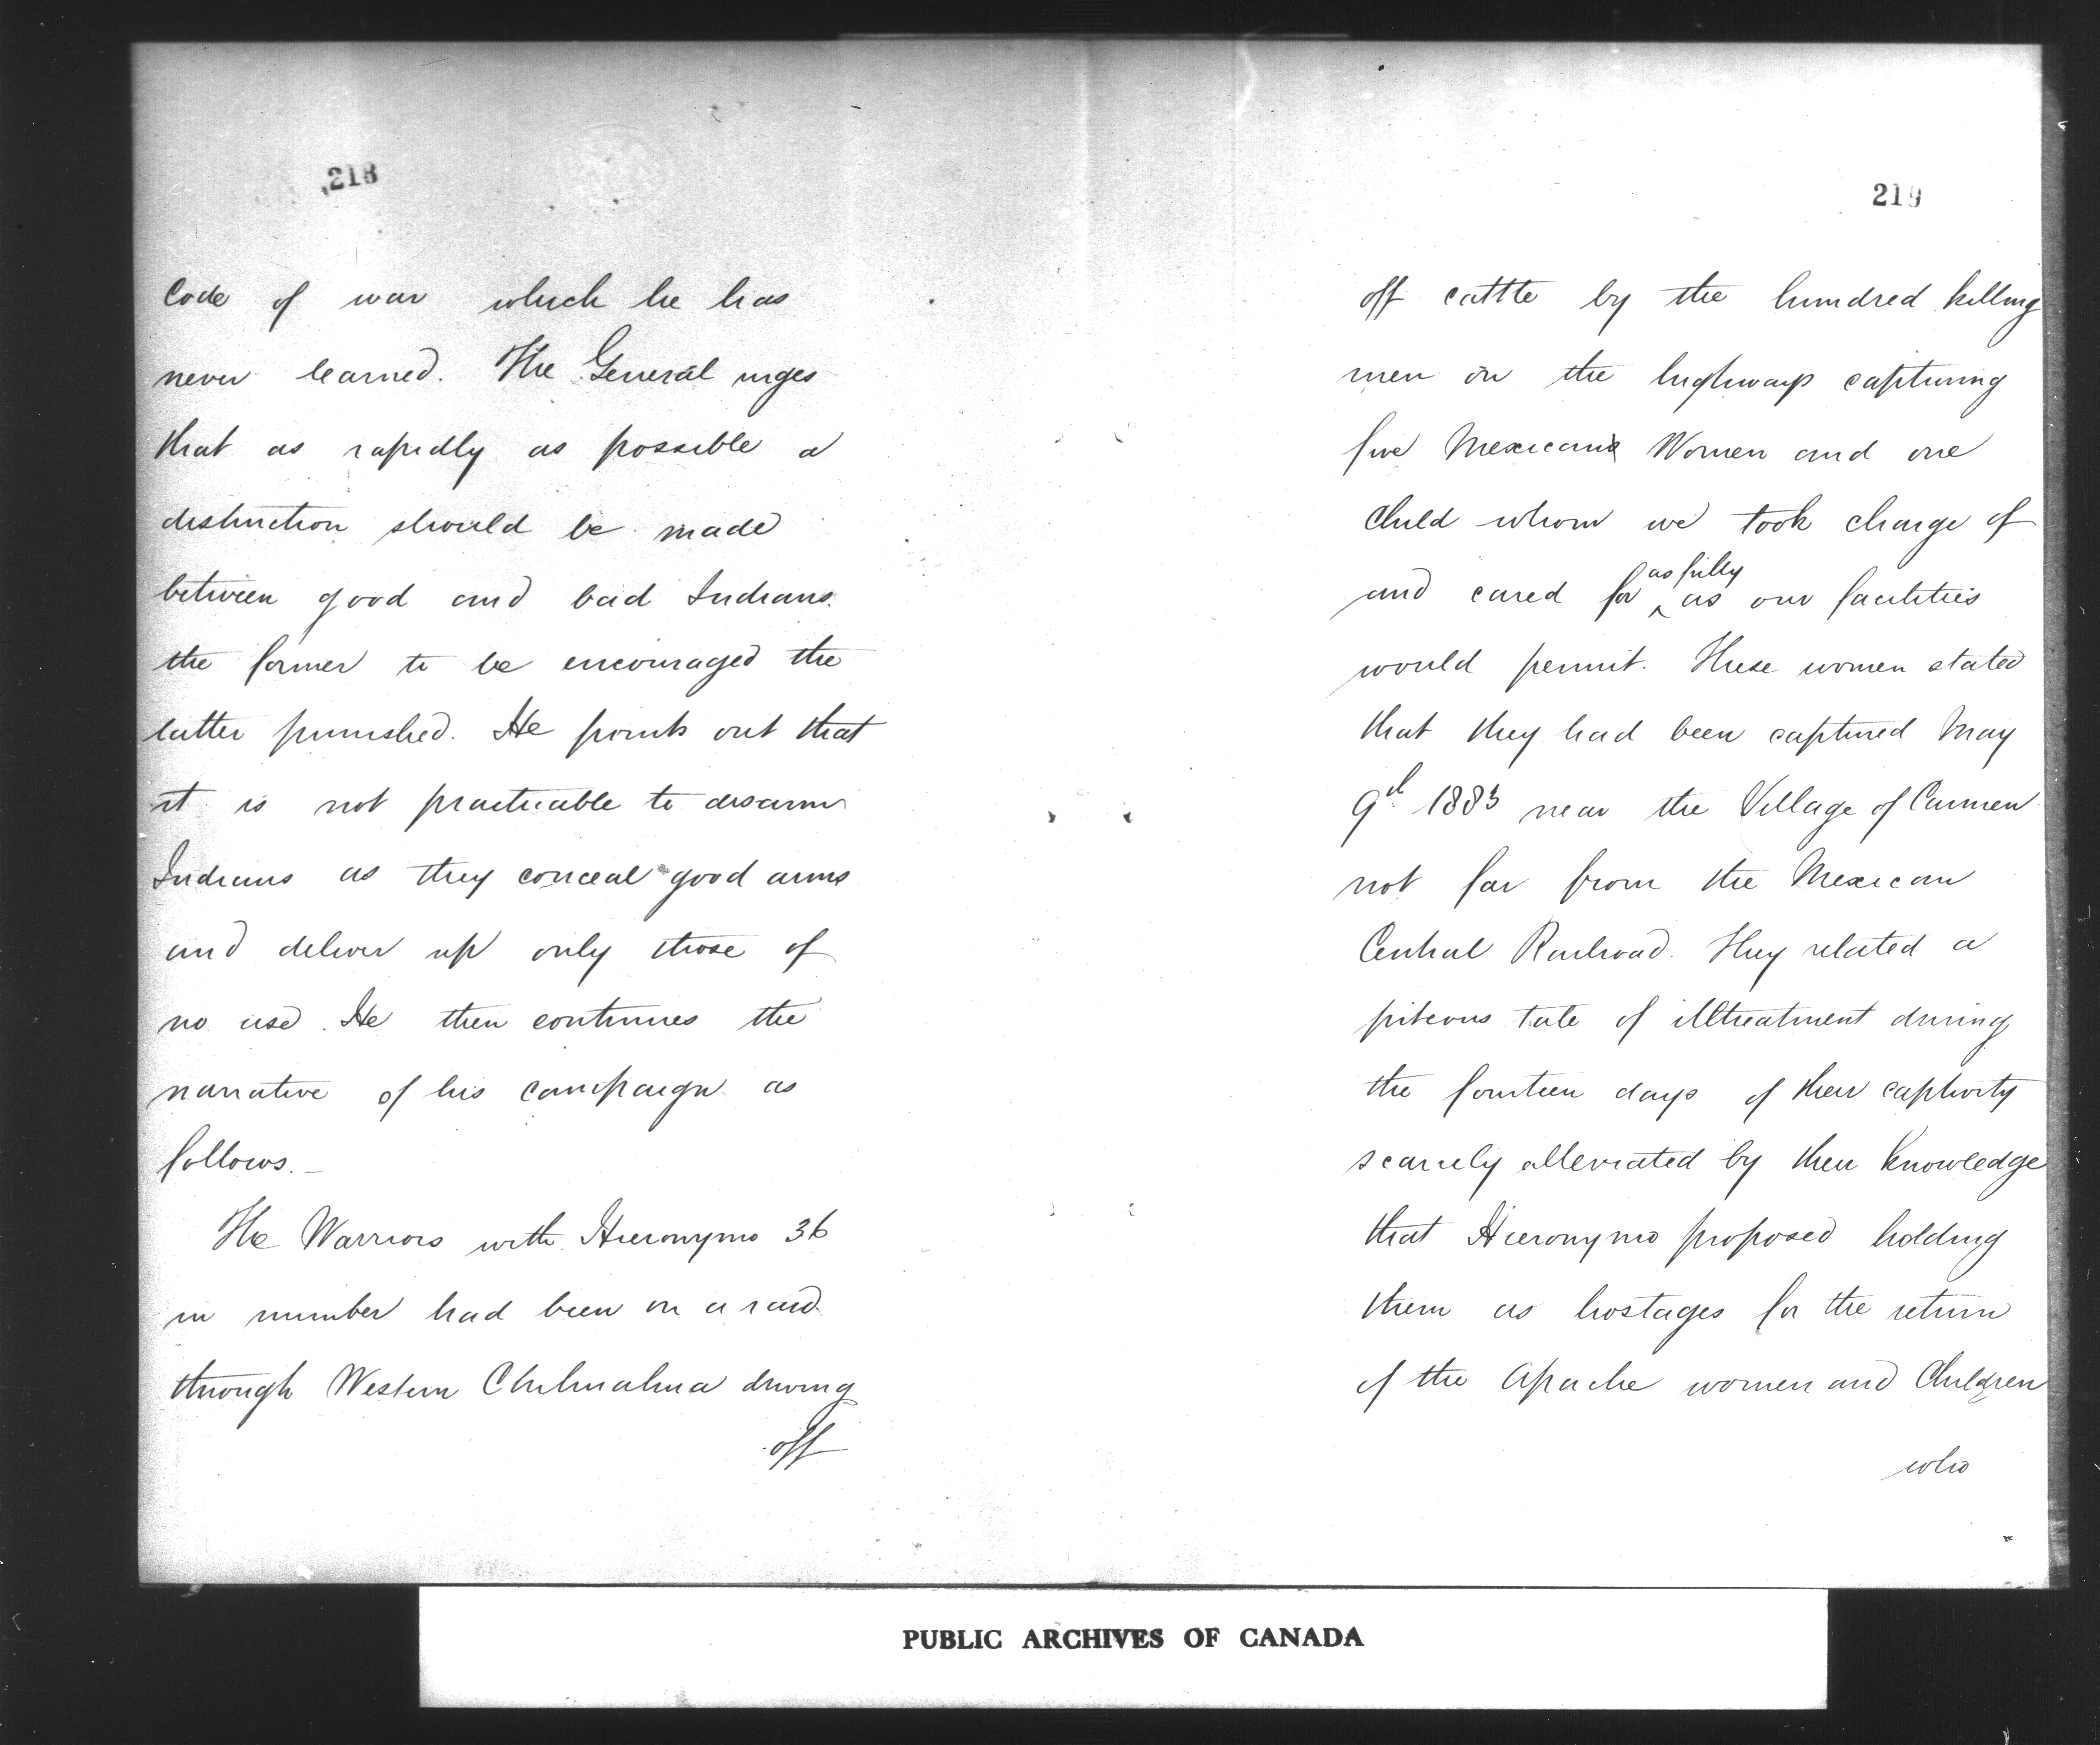 218
Code of war which he has
never learned. The General urges
that as rapidly as possible a
distinction should be made
between good and bad Indians.
the former to be encouraged the
latter punished. He points out that
it is not practicable to disarm
Indians as they conceal good arms
and deliver up only those of
no use. He then continues the
narrative of his campaign as
follows. —
The Warriors with Hieronymo 36
in number had been on a raid
through Western Chihuahua driving
off
219
off cattle by the hundred killing
men on the highways capturing
five Mexican Women and one
Child whom we took charge of
and cared for as fully as our facilities
would permit. These women stated
that they had been captured May
9th 1883 near the Village of Carmen
not far from the Mexican
Central Railroad. They related a
piteous tale of illtreatment during
the fourteen days of their captivity
scarcely alleviated by their Knowledge
that Hieronymo proposed holding
them as hostages for the return
of the Apache women and Children
who
PUBLIC ARCHIVES OF CANADA